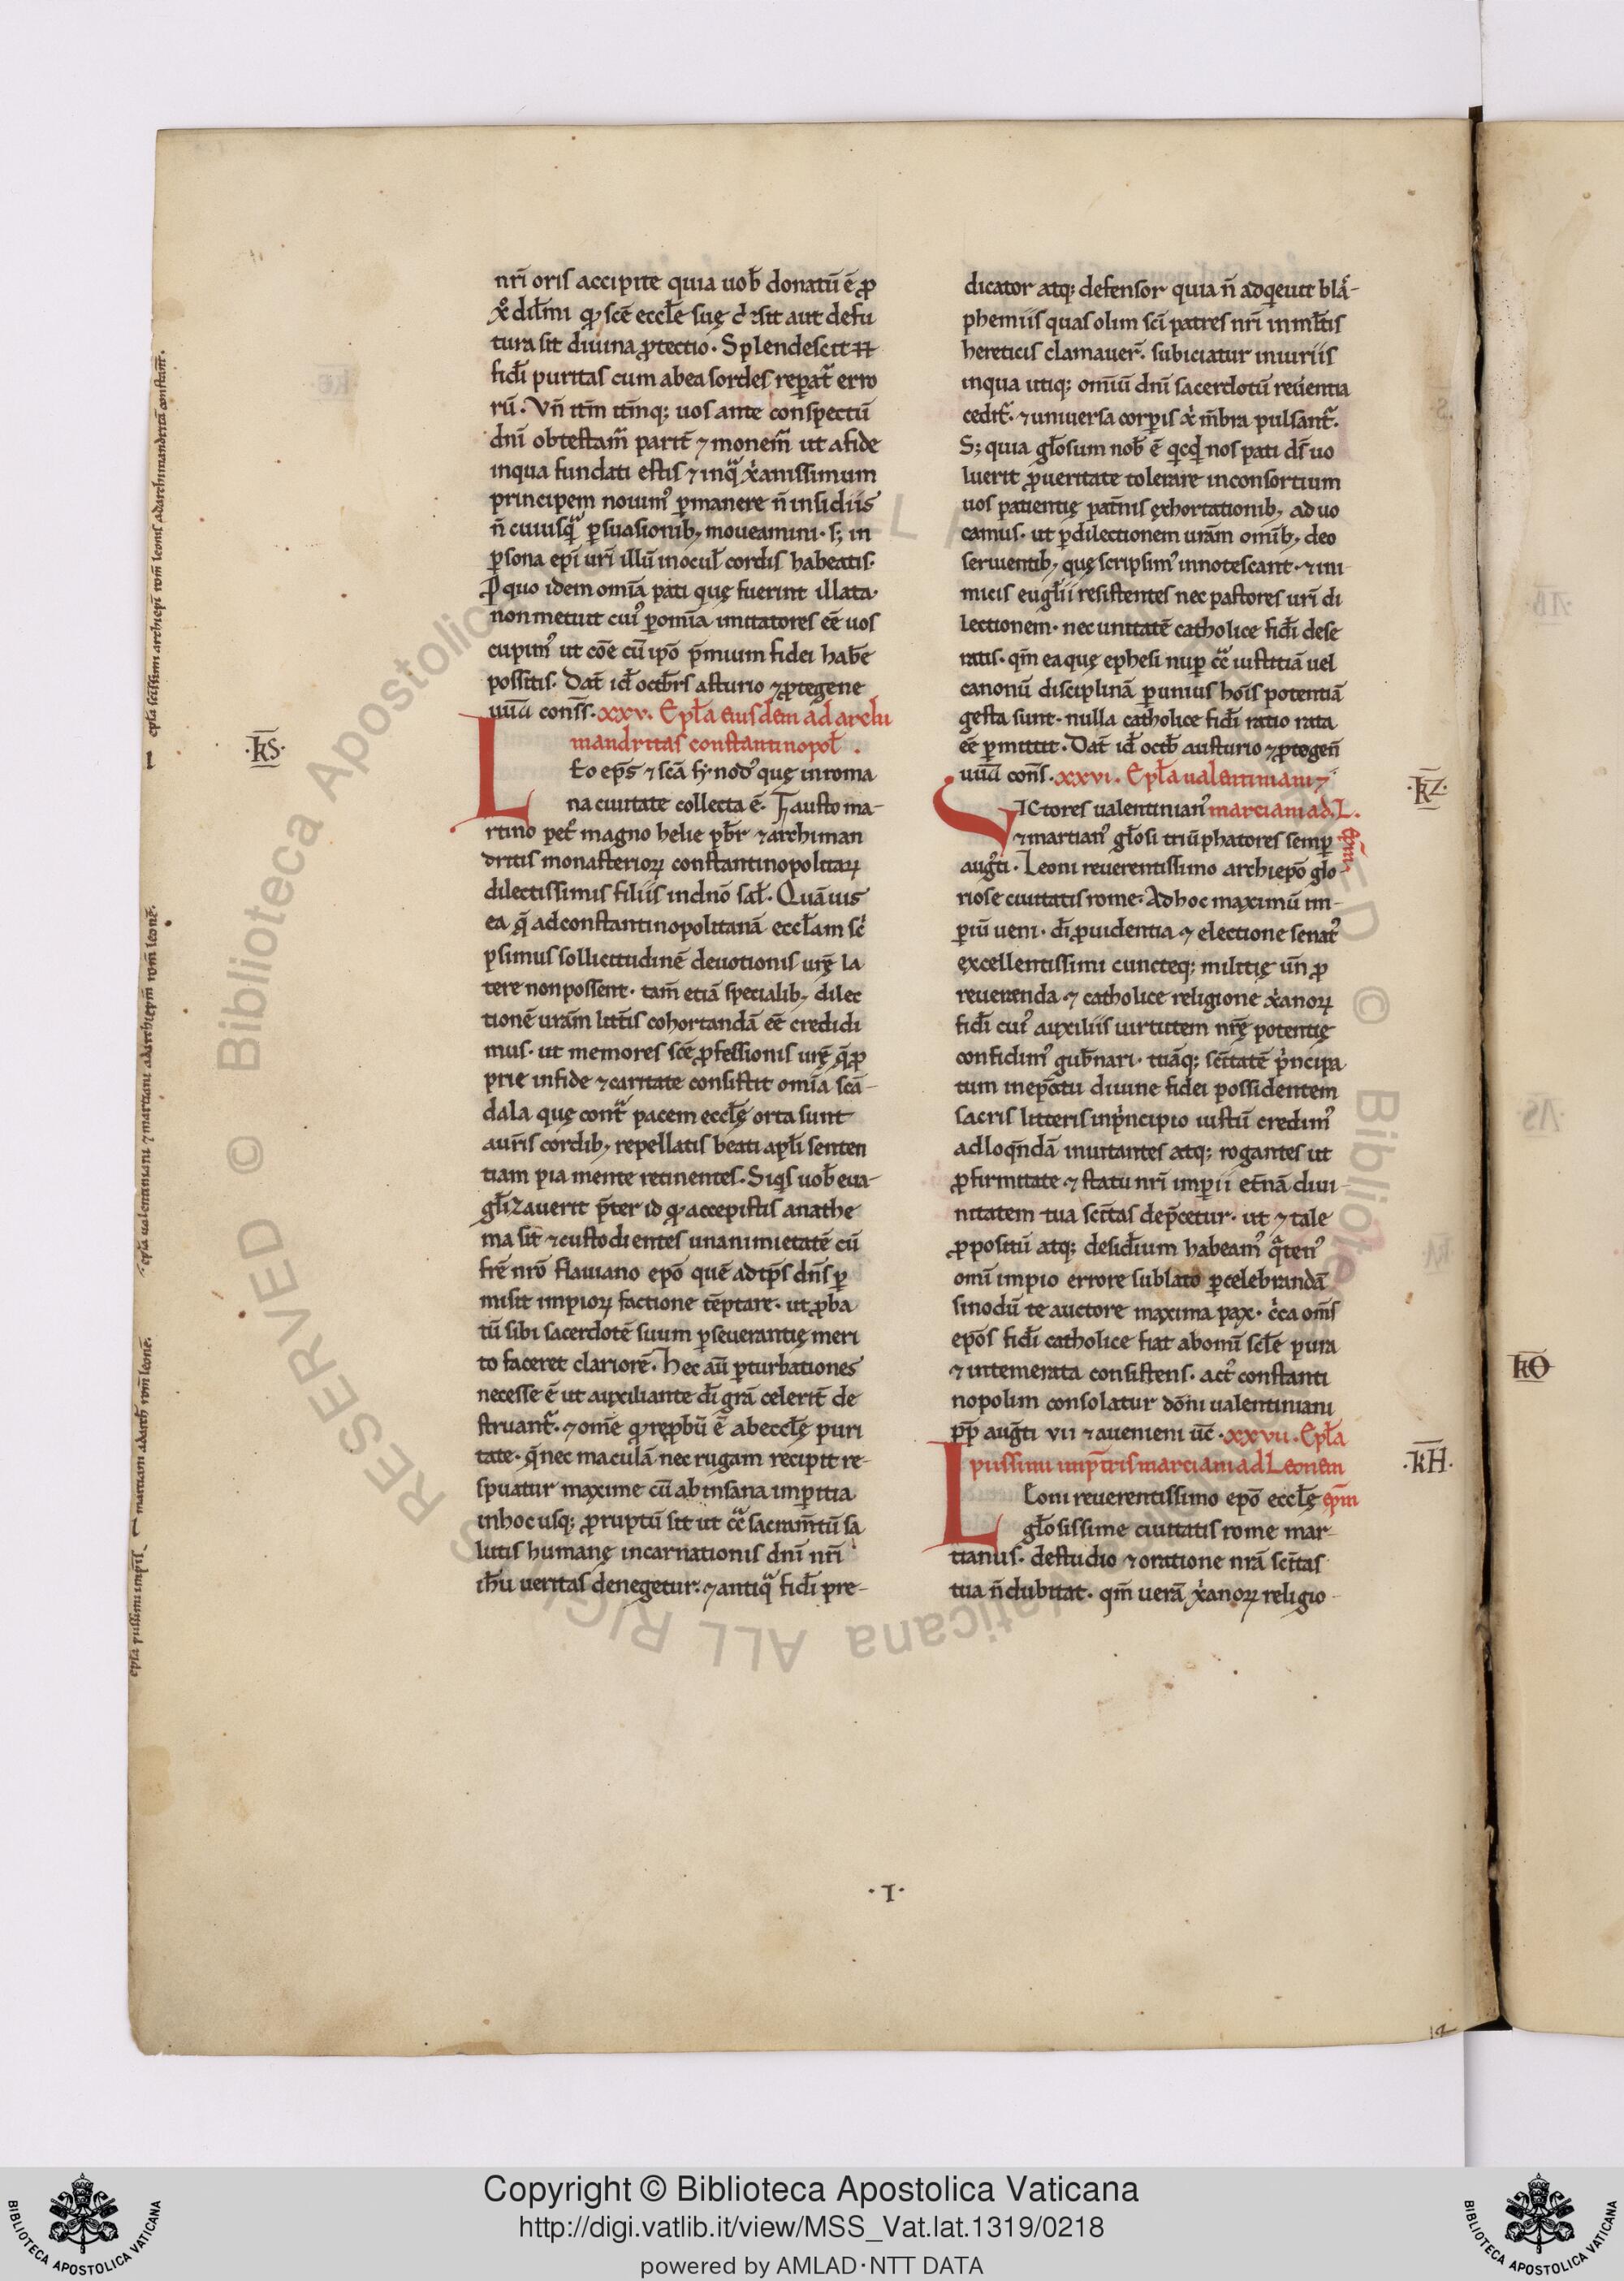 nr̄i oris accipite quia uob̄ donatū ē ꝓ
dil̄mi scē eccl̄e suę sit aut defu
tura sit diuina ꝓtectio. Splendescit
fid̄i puritas cum abea sordes repat̄ erro
rū. Vn̄ itm̄ itm̄q; uos ante conspectū
dn̄i obtestam̄ parit̄ ⁊ monem̄ ut afide
inqua fundati estis ⁊ inq̄ xānissimum
principem nouim᾽ ꝑmanere n̄ insidiis
n̄ cuiusq̄ ꝑsuasionib; moueamini. s; in
ꝑsona epī ur̄i illū inocul̄ cordis habeatis.
P quo idem omīa pati quę fuerint illata.
non metuit cui᾽ ꝑomīa imitatores eē uos
cupim᾽ ut cōe cū ipō p̄mium fidei hab̄e
possitis. Dat̄ id̄ octb̄rs asturio ⁊ ꝓtegene
consS. xxv. Epl̄a eiusdem ad archi
mandritas constantinopol̄.
Leo ep̄s ⁊ scā synod᾽ quę inroma
na ciuitate collecta ē. Fausto ma-
rtino pet᾽ magno helie pb̄r ⁊ archiman
dritis monasterioꝝ constantinopolitaꝝ
dilectissimis filiis indn̄o sal̄. Quāuis
ea q̄ adconstantinopolitanā eccl̄am sc᾽
psimus sollicitudinē deuotionis ur̄ę la
tere nonpossent. tam̄ etiā specialib; dilec
tionē urām litt̄is cohortandā eē credidi
mus. ut memores scē ꝓfessionis ur̄ę q̄ ꝓ
prie infide ⁊ caritate consistit omīa scā-
dala quę cont̄ pacem eccl̄ę orta sunt
aur̄is cordib; repellatis beati apl̄i senten
tiam pia mente retinentes. Siq̇s uob̄ eua-
gl̄izauerit p̄ter id accepistis anathe
ma sit ⁊ custodientes unanimietatē cū
fr̄e nr̄o flauiano epō quē adtp̄s dn̄s ꝑ
misit impioꝝ factione tēptare. ut ꝓba
tū sibi sacerdotē suum ꝑseuerantię meri
to faceret clariorē. Hec aū ꝑturbationes
necesse ē ut auxiliante dī grā celerit̄ de
struant̄. ⁊ om̄e repbū ē abeccl̄ę puri
tate. q̄ nec maculā nec rugam recipit re-
spuatur maxime cū ab insana imꝑitia
inhoc usq; ꝓruptū sit ut cc̄ sacram̄tū sa
lutis humanę incarnationis dn̄i nr̄i
ih̄u ueritas denegetur. ⁊ antiq̄ fid̄i pre-
dicator atq; defensor quia n̄ adqeuit blā-
phemiis quas olim scī patres nr̄i inml̄tis
hereticis clamauer̄. subiciatur iniuriis
inqua utiq; omīū dn̄i sacerdotū reūentia
cedit̄. ⁊ uniuersa corꝑis x᾽ m̄bra pulsant̄.
S; quia gl̄osum nob̄ ē qcq̇d nos pati ds̄ uo
luerit ꝓueritate tolerare inconsortium
uos patientię pat̄nis exhortationib; aduo
camus. ut ꝑdilectionem urām omīb; deo
seruientib; quę scripsim᾽ innotescant. ⁊ ini-
micis eugl̄ii resistentes nec pastores ur̄i di
lectionem. nec unitatē catholice fid̄i dese
ratis. qm̄ ea quę ephesi nuꝑ cc̄ iustitiā uel
canonū disciplinā ꝑ unius hoīs potentiā
gesta sunt. nulla catholice fid̄i ratio rata
eē ꝑmittit. Dat̄ id̄ octb̄ austurio ⁊ ꝓtogen̄
consS. xxvi. Epl̄a ualentiniani ⁊
Victores ualentinian᾽ marciani ad. L.
epm̄
⁊ martian᾽ gl̄osi triūphatores semꝑ
auḡti. Leoni reuerentissimo archiepō glo-
riose ciuitatis rome. Ad hoc maximū im-
ꝑiū ueni. dī ꝓuidentia ⁊ electione senat᾽
excellentissimi cuncteq; militię un̄ ꝓ
reuerenda ⁊ catholice religione xānoꝝ
fid̄i cui᾽ auxiliis uirtutem nr̄ę potentię
confidim᾽ gub̄nari. tuāq; scītatē p̄ncipa
tum inep̄catu diuine fidei possidentem
sacris litteris inp̄ncipio iustū credim᾽
adloq̄ndā inuitantes atq; rogantes ut
ꝓfirmitate ⁊ statu nr̄i imꝑii et̄nā diui-
nitatem tua scītas dep̄cetur. ut ⁊ tale
ꝓpositū atq; desid̄ium habeam᾽ q̄ten᾽
omī impio errore sublato ꝑcelebrandā
sinodū te auctore maxima pax. c̄ca om̄s
epōs fid̄i catholice fiat abomī scl̄e pura
⁊ intemerata consistens. act᾽ constanti
nopolim consolatur dōni ualentiniani
pp̄ auḡti vii ⁊ auenieni uc̄. xxvii. Epl̄a
piissimi imp̄tris marciani ad Leonem
epm̄
Leoni reuerentissimo epō eccl̄ę
gl̄osissime ciuitatis rome mar-
tianus. destudio ⁊ oratione nrā scītas
tua n̄ dubitat. qm̄ uerā xānoꝝ religio-
.k̄S.
.k̄Z.
.k̄H.
k̄Θ
.I.
12
epl̄a sc̄issimi archiepī rom̄ leonis adarchimandritā constant̄.
epl̄a ualentiniani ⁊ martiani adarchiepm̄ rom̄ leonē.
epl̄a piissimi imp̄ris
martiani adarch̄ rom̄ leonē.
Copyright © Biblioteca Apostolica Vaticana
http://digi.vatlib.it/view/MSS_Vat.lat.1319/0218
powered by AMLAD·NTT DATA
BIBLIOTECA APOSTOLICA VATICANA
BIBLIOTECA APOSTOLICA VATICANA